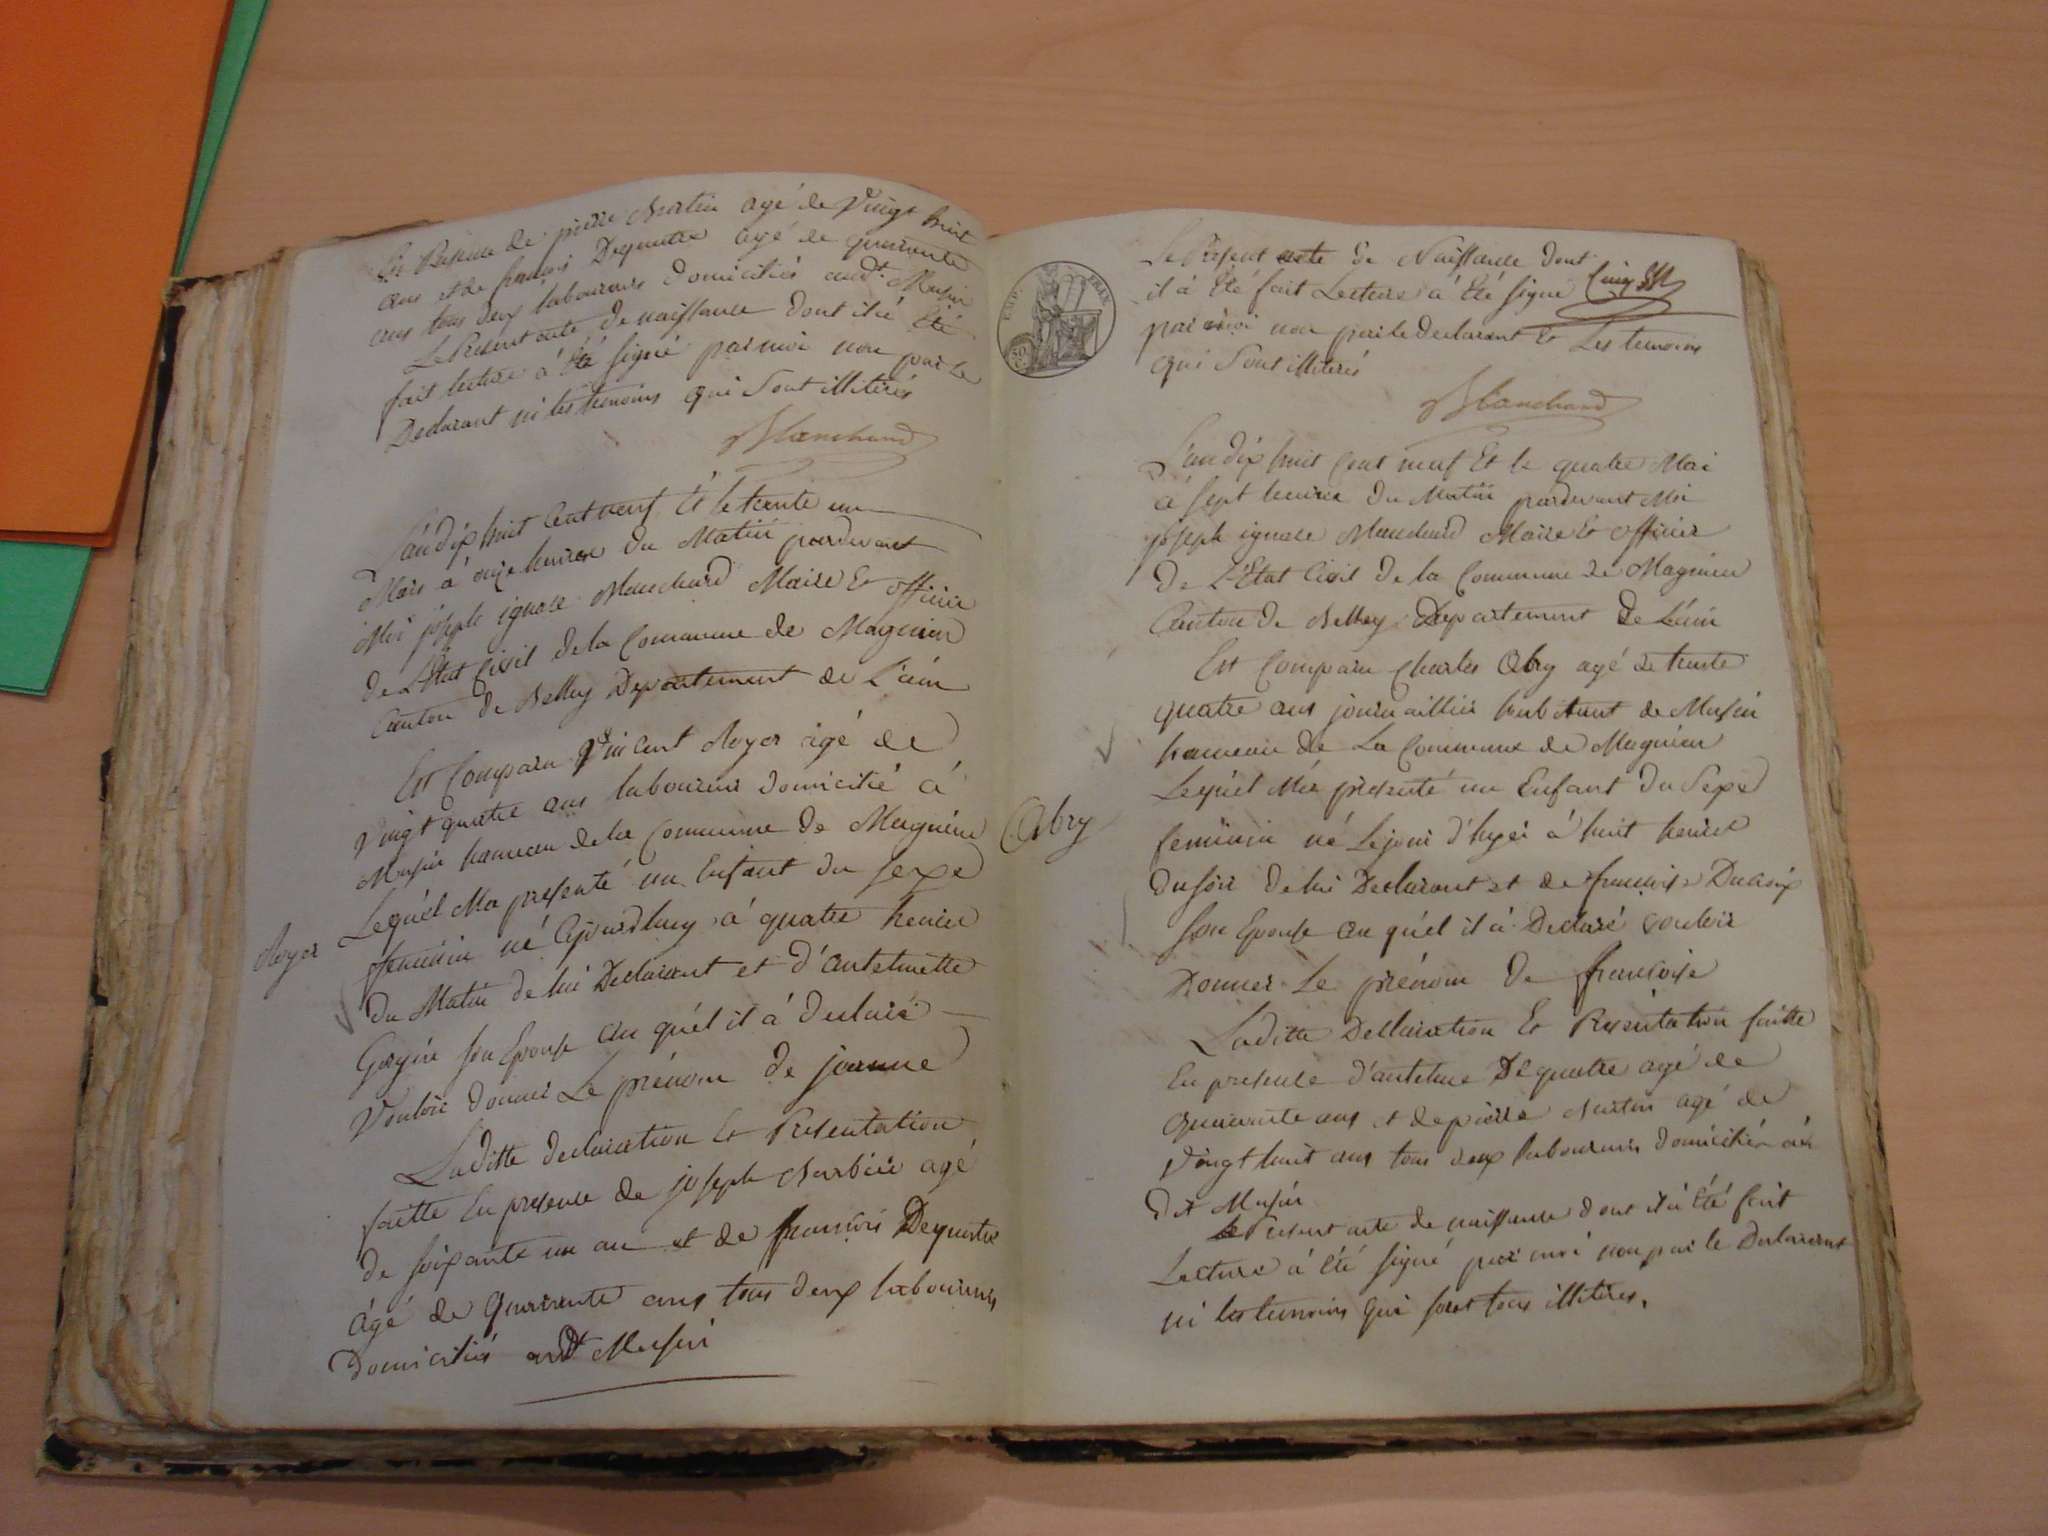 En Présence de pierre Martin agé de Vingt huit
ans et de françois Dequatre agé de quarente
ans tous deux laboureurs domiciliés audt. Musin
Le Présent acte de naissance dont il á Eté
fait lecture á Eté signé par moi non par Le
Declarant ni les temoins qui sont illiterés
Blanchard
L'an dix huit Cent neuf Et le trente un
Mars á onze heures du Matin pardevant
Moi joseph ignace Blanchard Maire Et officier
de L'Etat Civil de la Commune de Magnieu
Canton de Belley Departement de L'ain
Est Comparu Vincent Royer agé de
vingt quatre ans laboureur domicilié á
Musin hameau de la Commune de Magnieu
Lequél Ma presenté un Enfant du sexe
Royer
femínin né Ajourdhuy á quatre heures
du Matin de lui Declarant et d'antelmette
son Epouse au quél il á declaré
Vouloir donner Le prénom de jeanne
Laditte declaration Et Présentation
faitte En presence de joseph Barbier agé
de soixante un an et de francois Dequatre
ágé de Quarante ans tous deux laboureurs
Domiciliés audt Musin
Le Présent acte de Naissance dont
il á Eté fait Lecture á Eté signé
par moi non par le Declarant Et Les temoins
qui sont illiterés
Blanchard
L'an dix huit Cent neuf Et le quatre Mai
á sept heures du Matin pardevant Moi
joseph ignace Blanchard Maire Et officier
de L'Etat Civil de la Commune de Magnieu
Canton de Belley Departement De L'ain
Est Comparu Charles Obry agé de trente
quatre ans journaillier habitant de Musin
hameau de La Commune de Magnieu
Lequél M'á présenté un Enfant Du Sexe
Obry
feminin né Le jour d'hyér á huit heures
du soir de lui Declarant et de françoise Ducroix
son Epouse au quél il á Declaré vouloir
Donner Le prénom de françoise
Laditte Declaration Et Présentation faitte
En presence d'antelme Dequatre agé de
Quarante ans et de pierre Martin agé de
vingt huit ans tous deux laboureurs domiciliés au
dit Musin
Le Présent acte de naissance dont il á Eté fait
Lecture á Eté signé par moi non par le Declarant
ni les temoins qui sont tous illiterés.
EMP.
FRAN.
50
C.